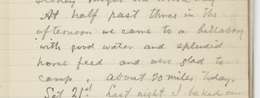 At half past three in the
afternoon we came to a billabong
with good water and splendid
horse feed and were glad to
camp. About 20 miles today.
Sat 21st Last night I baked our